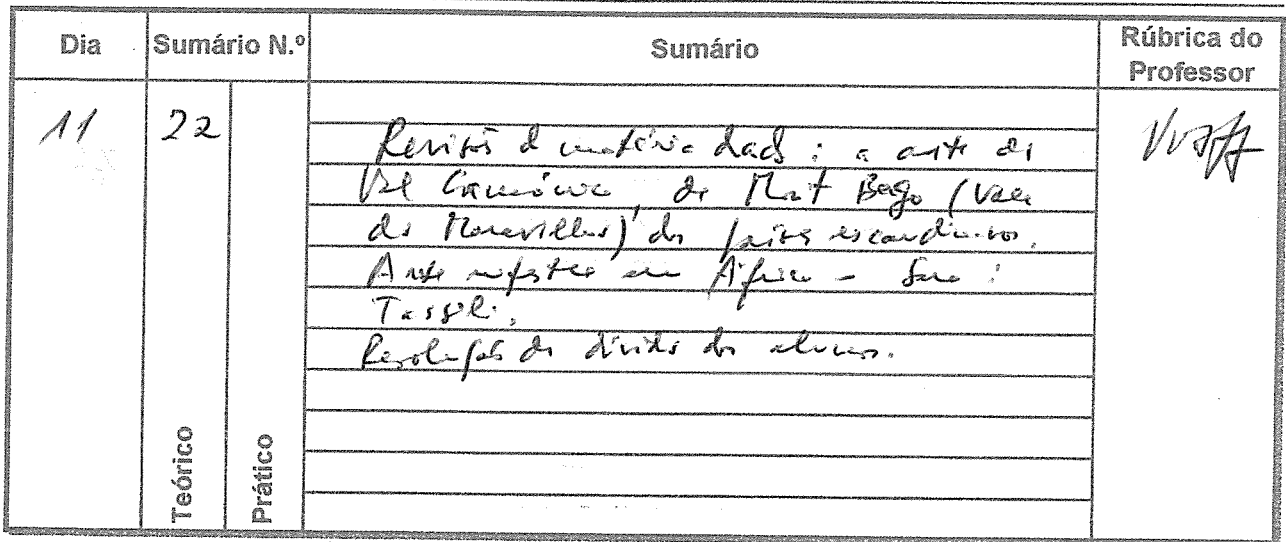 Dia Sumário N.º Sumário Rúbrica do Professor
11 22
Revisão de matéria dada: a arte de
Val Camónica, do Mont Bego (Vale
das Maravilhas), dos países escandinavos.
Arte rupestre em África - Sara:
Tassili.
Resolução de dúvidas dos alunos.
Teórico
Prático